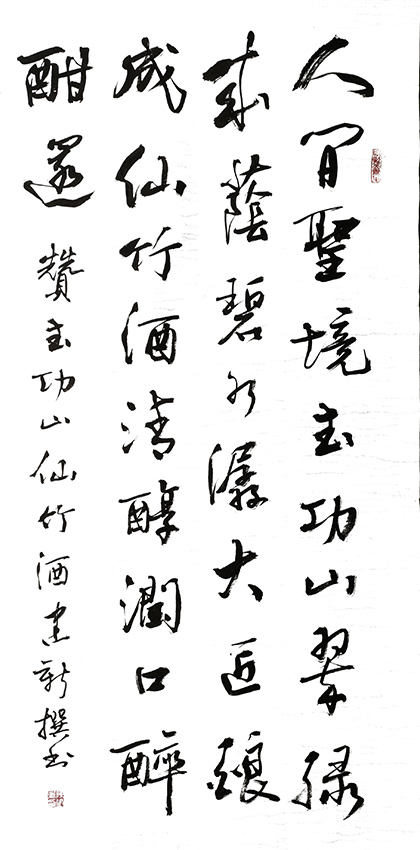 人間聖境武功山翠緑
成蔭碧水潺大匠釀
成仙竹酒清醇潤口醉
酣還
贊武功山仙竹酒建新撰书